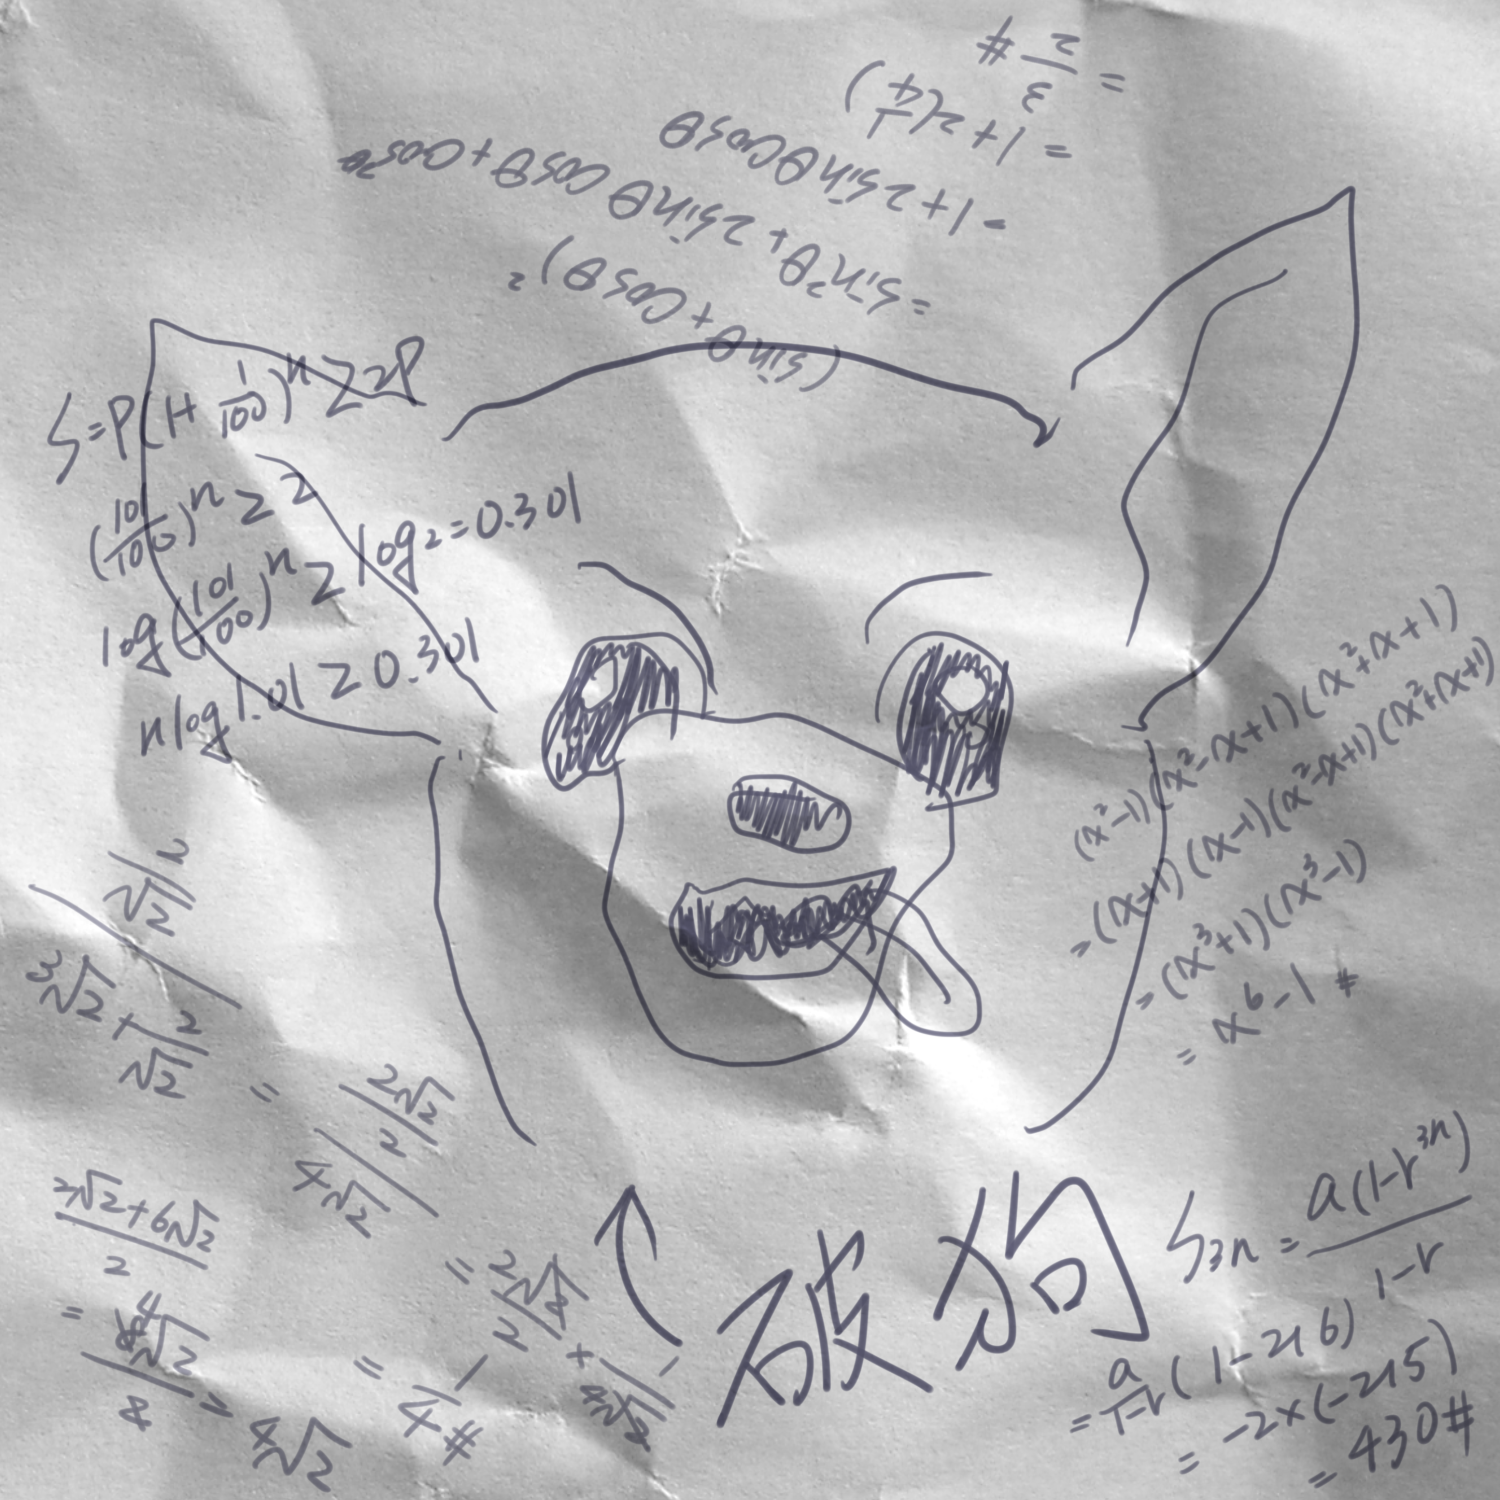 (sinθ+cosθ)²
=sin²θ+2sinθcosθ+cos²θ
=1+2sinθcosθ
=1+2(1/4)
=3/2 #
S=P(1+1/100)ⁿ≥2P
(101/100)ⁿ≥2
log(101/100)ⁿ≥log2=0.301
nlog1.01≥0.301
(x²-1)(x²-x+1)(x²+x+1)
=(x+1)(x-1)(x²-x+1)(x²+x+1)
=(x³+1)(x³-1)
=x⁶-1 #
2/√2
3√2+2/√2
=
2√2/2
4√2
=2√2/2×1/4√2
=1/4 #
2√2+6√2
2
=
4√2
破狗
S3n=a(1-r³ⁿ)/1-r
=a/1-r(1-216)
=-2×(-215)
=430#